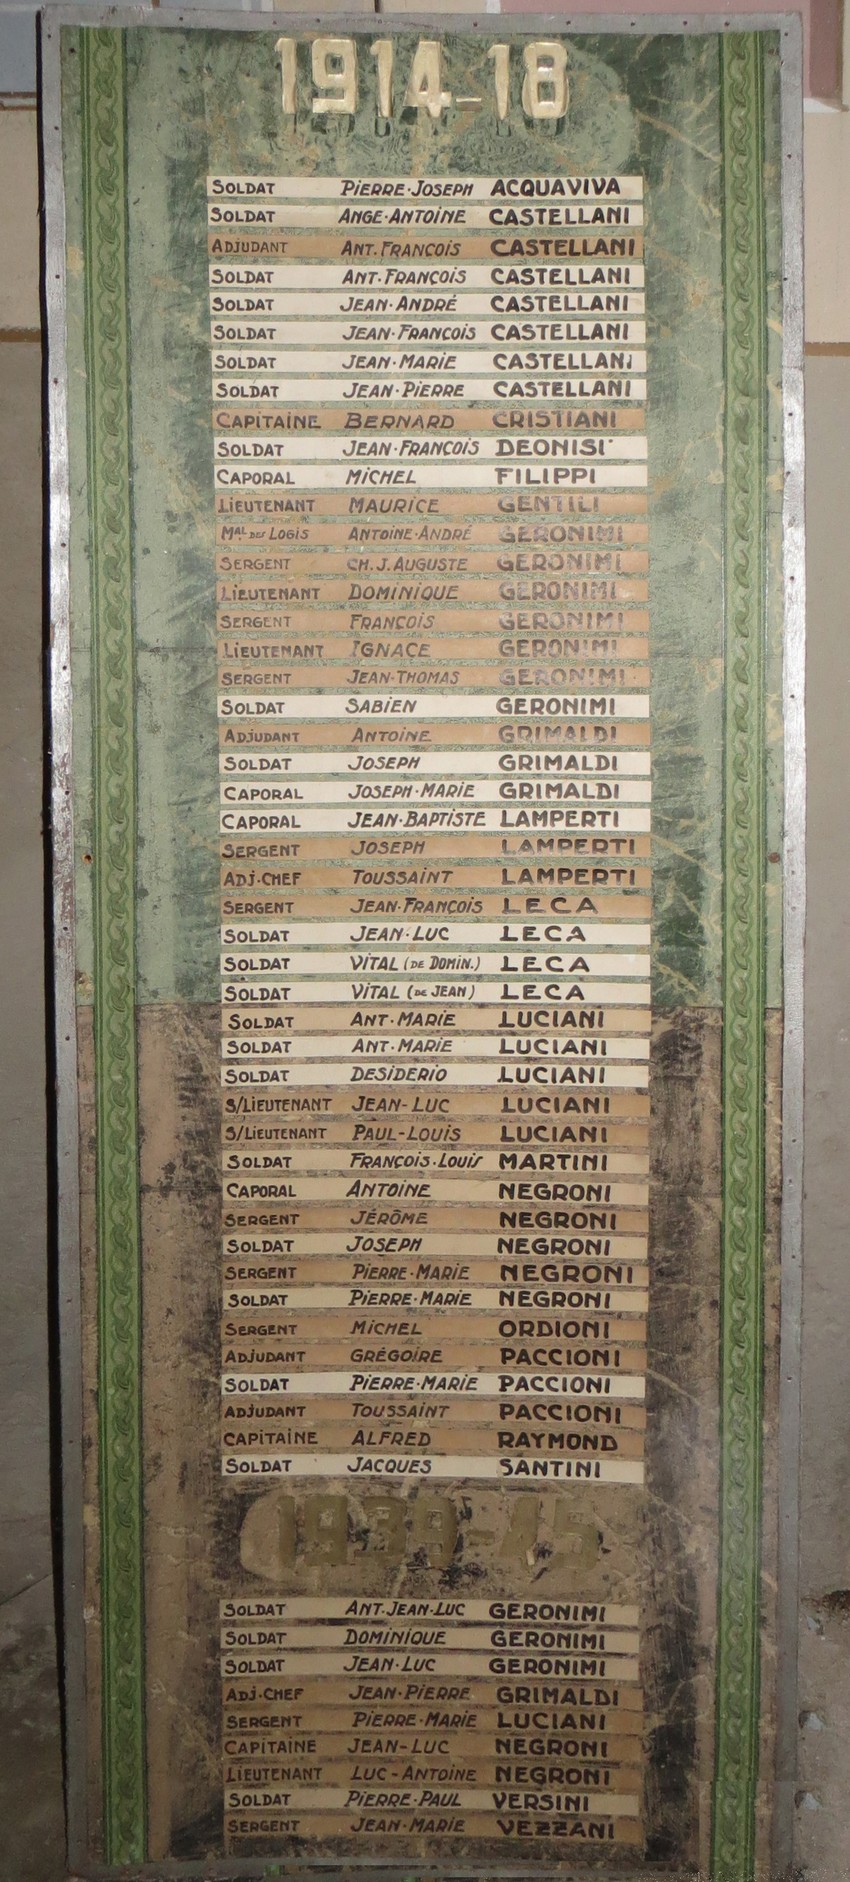 1914-18
SOLDAT PIERRE·JOSEPH ACQUAVIVA
SOLDAT ANGE·ANTOINE CASTELLANI
ADJUDANT ANT. FRANÇOIS CASTELLANI
SOLDAT ANT. FRANÇOIS CASTELLANI
SOLDAT JEAN·ANDRÉ CASTELLANI
SOLDAT JEAN·FRANÇOIS CASTELLANI
SOLDAT JEAN·MARIE CASTELLANI
SOLDAT JEAN·PIERRE CASTELLANI
CAPITAINE BERNARD CRISTIANI
SOLDAT JEAN·FRANÇOIS DEONISI
CAPORAL MICHEL FILIPPI
LIEUTENANT MAURICE GENTILI
MAL DES LOGIS ANTOINE·ANDRÉ GERONIMI
SERGENT CH. J. AUGUSTE GERONIMI
LIEUTENANT DOMINIQUE GERONIMI
SERGENT FRANÇOIS GERONIMI
LIEUTENANT IGNACE GERONIMI
SERGENT JEAN·THOMAS GERONIMI
SOLDAT SABIEN GERONIMI
ADJUDANT ANTOINE GRIMALDI
SOLDAT JOSEPH GRIMALDI
CAPORAL JOSEPH·MARIE GRIMALDI
CAPORAL JEAN·BAPTISTE LAMPERTI
SERGENT JOSEPH LAMPERTI
ADJ·CHEF TOUSSAINT LAMPERTI
SERGENT JEAN·FRANÇOIS LECA
SOLDAT JEAN·LUC LECA
SOLDAT VITAL (DE DOMIN.) LECA
SOLDAT VITAL (DE JEAN) LECA
SOLDAT ANT·MARIE LUCIANI
SOLDAT ANT·MARIE LUCIANI
SOLDAT DESIDERIO LUCIANI
S/LIEUTENANT JEAN-LUC LUCIANI
S/LIEUTENANT PAUL-LOUIS LUCIANI
SOLDAT FRANÇOIS·LOUIS MARTINI
CAPORAL ANTOINE NEGRONI
SERGENT JÉRÔME NEGRONI
SOLDAT JOSEPH NEGRONI
SERGENT PIERRE·MARIE NEGRONI
SOLDAT PIERRE·MARIE NEGRONI
SERGENT MICHEL ORDIONI
ADJUDANT GRÉGOIRE PACCIONI
SOLDAT PIERRE·MARIE PACCIONI
ADJUDANT TOUSSAINT PACCIONI
CAPITAINE ALFRED RAYMOND
SOLDAT JACQUES SANTINI
1939-45
SOLDAT ANT. JEAN·LUC GERONIMI
SOLDAT DOMINIQUE GERONIMI
SOLDAT JEAN·LUC GERONIMI
ADJ·CHEF JEAN·PIERRE GRIMALDI
SERGENT PIERRE·MARIE LUCIANI
CAPITAINE JEAN-LUC NEGRONI
LIEUTENANT LUC-ANTOINE NEGRONI
SOLDAT PIERRE·PAUL VERSINI
SERGENT JEAN·MARIE VEZZANI